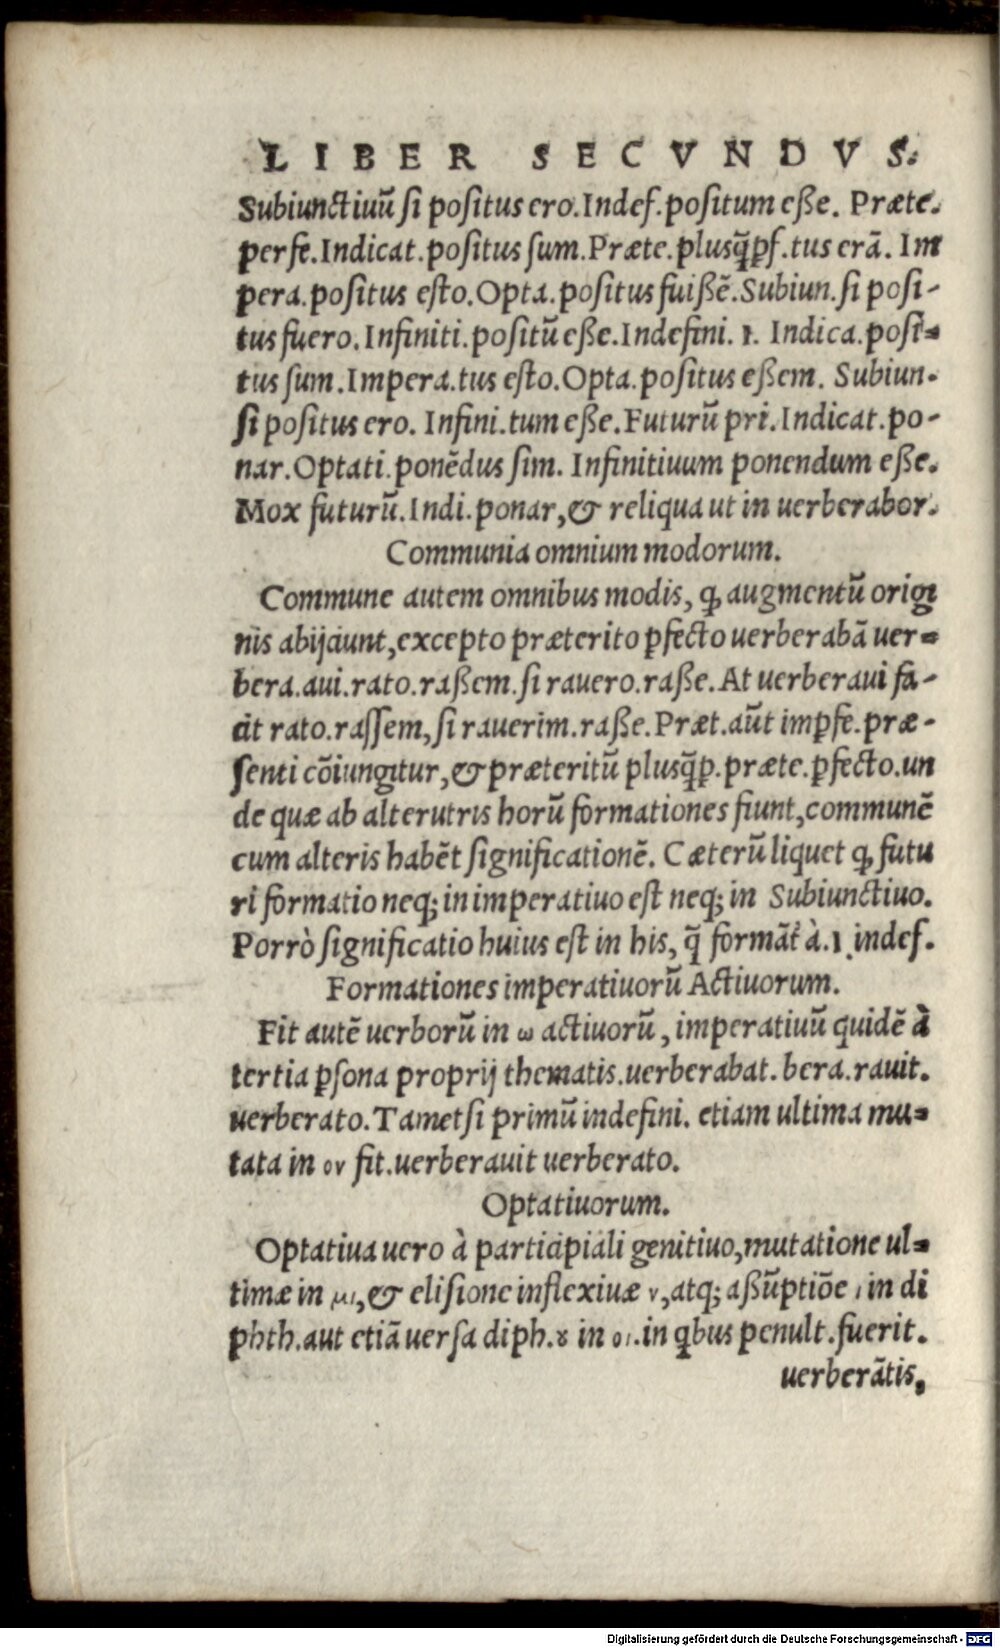 LIBER SECVNDVS.
Subiunctiuũ si positus ero. Indef. positum eße. Præte.
perfe. Indicat. positus sum. Præte. plusq̃ꝑf. tus erã. Im
pera. positus esto. Opta. positus fuißẽ. Subiun. si posi-
tus fuero. Infiniti. positũ eße. Indefini. 1. Indica. posi-
tus sum. Impera. tus esto. Opta. positus eßem. Subiun.
si positus ero. Infini. tum eße. Futurũ pri. Indicat. po-
nar. Optati. ponẽdus sim. Infinitiuum ponendum eße.
Mox futurũ. Indi. ponar, & reliqua ut in uerberabor.
Communia omnium modorum.
Commune autem omnibus modis, ꝙ augmentũ origi
nis abijciunt, excepto præterito ꝑfecto uerberabã uer-
bera. aui. rato. raßem. si rauero. raße. At uerberaui fa-
cit rato. rassem, si rauerim. raße. Præt. aũt imꝑfe. præ-
senti cõiungitur, & præteritũ plusq̃ꝑ. præte. ꝑfecto. un
de quæ ab alterutris horũ formationes fiunt, communẽ
cum alteris habẽt significationẽ. Cæterũ liquet ꝙ futu
ri formatio neq; in imperatiuo est neq; in Subiunctiuo.
Porrò significatio huius est in his, q̃ formãt à. 1. indef.
Formationes imperatiuorũ Actiuorum.
Fit autẽ uerborũ in ω actiuorũ, imperatiuũ quidẽ à
tertia ꝑsona proprij thematis. uerberabat. bera. rauit.
uerberato. Tametsi primũ indefini. etiam ultima mu-
tata in ον fit. uerberauit uerberato.
Optatiuorum.
Optatiua uero à participiali genitiuo, mutatione ul-
timæ in μι, & elisione inflexiuæ ν, atq; aßũptiõe ι in di
phth. aut etiã uersa diph. ȣ in οι. in qͥbus penult. fuerit.
uerberãtis,
Digitalisierung gefördert durch die Deutsche Forschungsgemeinschaft - DFG